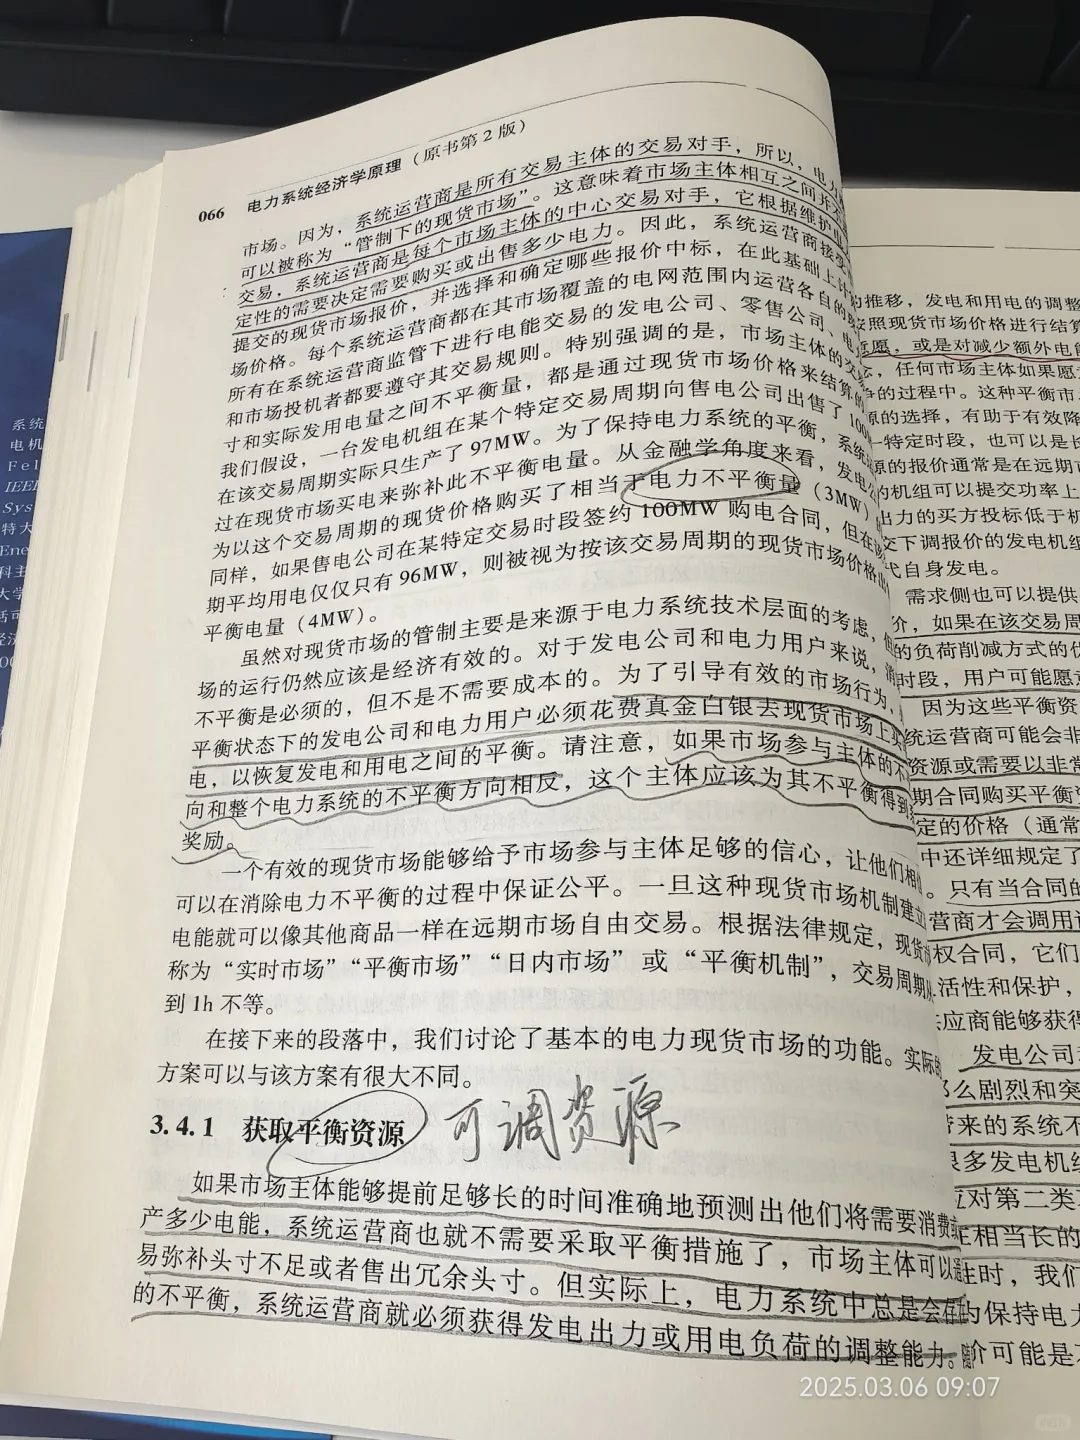 066 电力系统经济学原理（原书第2版）
市场。因为，系统运营商是所有交易主体的交易对手，所以，电力
可以被称为“管制下的现货市场”。这意味着市场主体相互之间并
交易，系统运营商是每个市场主体的中心交易对手，它根据维护电
定性的需要决定需要购买或出售多少电力。因此，系统运营商接受
提交的现货市场报价，并选择和确定哪些报价中标，在此基础上计
场价格。每个系统运营商都在其市场覆盖的电网范围内运营各自的
所有在系统运营商监管下进行电能交易的发电公司、零售公司、电
和市场投机者都要遵守其交易规则。特别强调的是，市场主体的交
寸和实际发用电量之间不平衡量，都是通过现货市场价格来结算的
我们假设，一台发电机组在某个特定交易周期向售电公司出售了100
在该交易周期实际只生产了97MW。为了保持电力系统的平衡，系统
过在现货市场买电来弥补此不平衡电量。从金融学角度来看，发电
为以这个交易周期的现货价格购买了相当于电力不平衡量（3MW）
同样，如果售电公司在某特定交易时段签约100MW购电合同，但在该
期平均用电仅仅只有96MW，则被视为按该交易周期的现货市场价格出
平衡电量（4MW）。
虽然对现货市场的管制主要是来源于电力系统技术层面的考虑，但
场的运行仍然应该是经济有效的。对于发电公司和电力用户来说，消
不平衡是必须的，但不是不需要成本的。为了引导有效的市场行为，
平衡状态下的发电公司和电力用户必须花费真金白银去现货市场上买
电，以恢复发电和用电之间的平衡。请注意，如果市场参与主体的不
向和整个电力系统的不平衡方向相反，这个主体应该为其不平衡得到
奖励。
一个有效的现货市场能够给予市场参与主体足够的信心，让他们相信
可以在消除电力不平衡的过程中保证公平。一旦这种现货市场机制建立
电能就可以像其他商品一样在远期市场自由交易。根据法律规定，现货
称为“实时市场”“平衡市场”“日内市场”或“平衡机制”，交易周期从
到1h不等。
在接下来的段落中，我们讨论了基本的电力现货市场的功能。实际的
方案可以与该方案有很大不同。
3.4.1 获取平衡资源 可调资源
如果市场主体能够提前足够长的时间准确地预测出他们将需要消费或
产多少电能，系统运营商也就不需要采取平衡措施了，市场主体可以通
易弥补头寸不足或者售出冗余头寸。但实际上，电力系统中总是会存在
的不平衡，系统运营商就必须获得发电出力或用电负荷的调整能力。
的推移，发电和用电的调整
按照现货市场价格进行结算
意愿，或是对减少额外电能
任何市场主体如果愿
争的过程中。这种平衡市
源的选择，有助于有效降
一特定时段，也可以是长
源的报价通常是在远期市
的机组可以提交功率上
出力的买方投标低于机
交下调报价的发电机组
代自身发电。
需求侧也可以提供
价，如果在该交易周
的负荷削减方式的优
时段，用户可能愿意
因为这些平衡资
统运营商可能会非
资源或需要以非常
期合同购买平衡资
定的价格（通常
中还详细规定了
。只有当合同的
营商才会调用
权合同，它们
活性和保护，
供应商能够获得
发电公司
那么剧烈和突
带来的系统不
很多发电机组
应对第二类
在相当长的
性时，我们
的保持电力
价可能是
系统
电机
Fel
IEEE
Sys
特大
Ene
科主
大学
括可
经济
2025.03.06 09:07